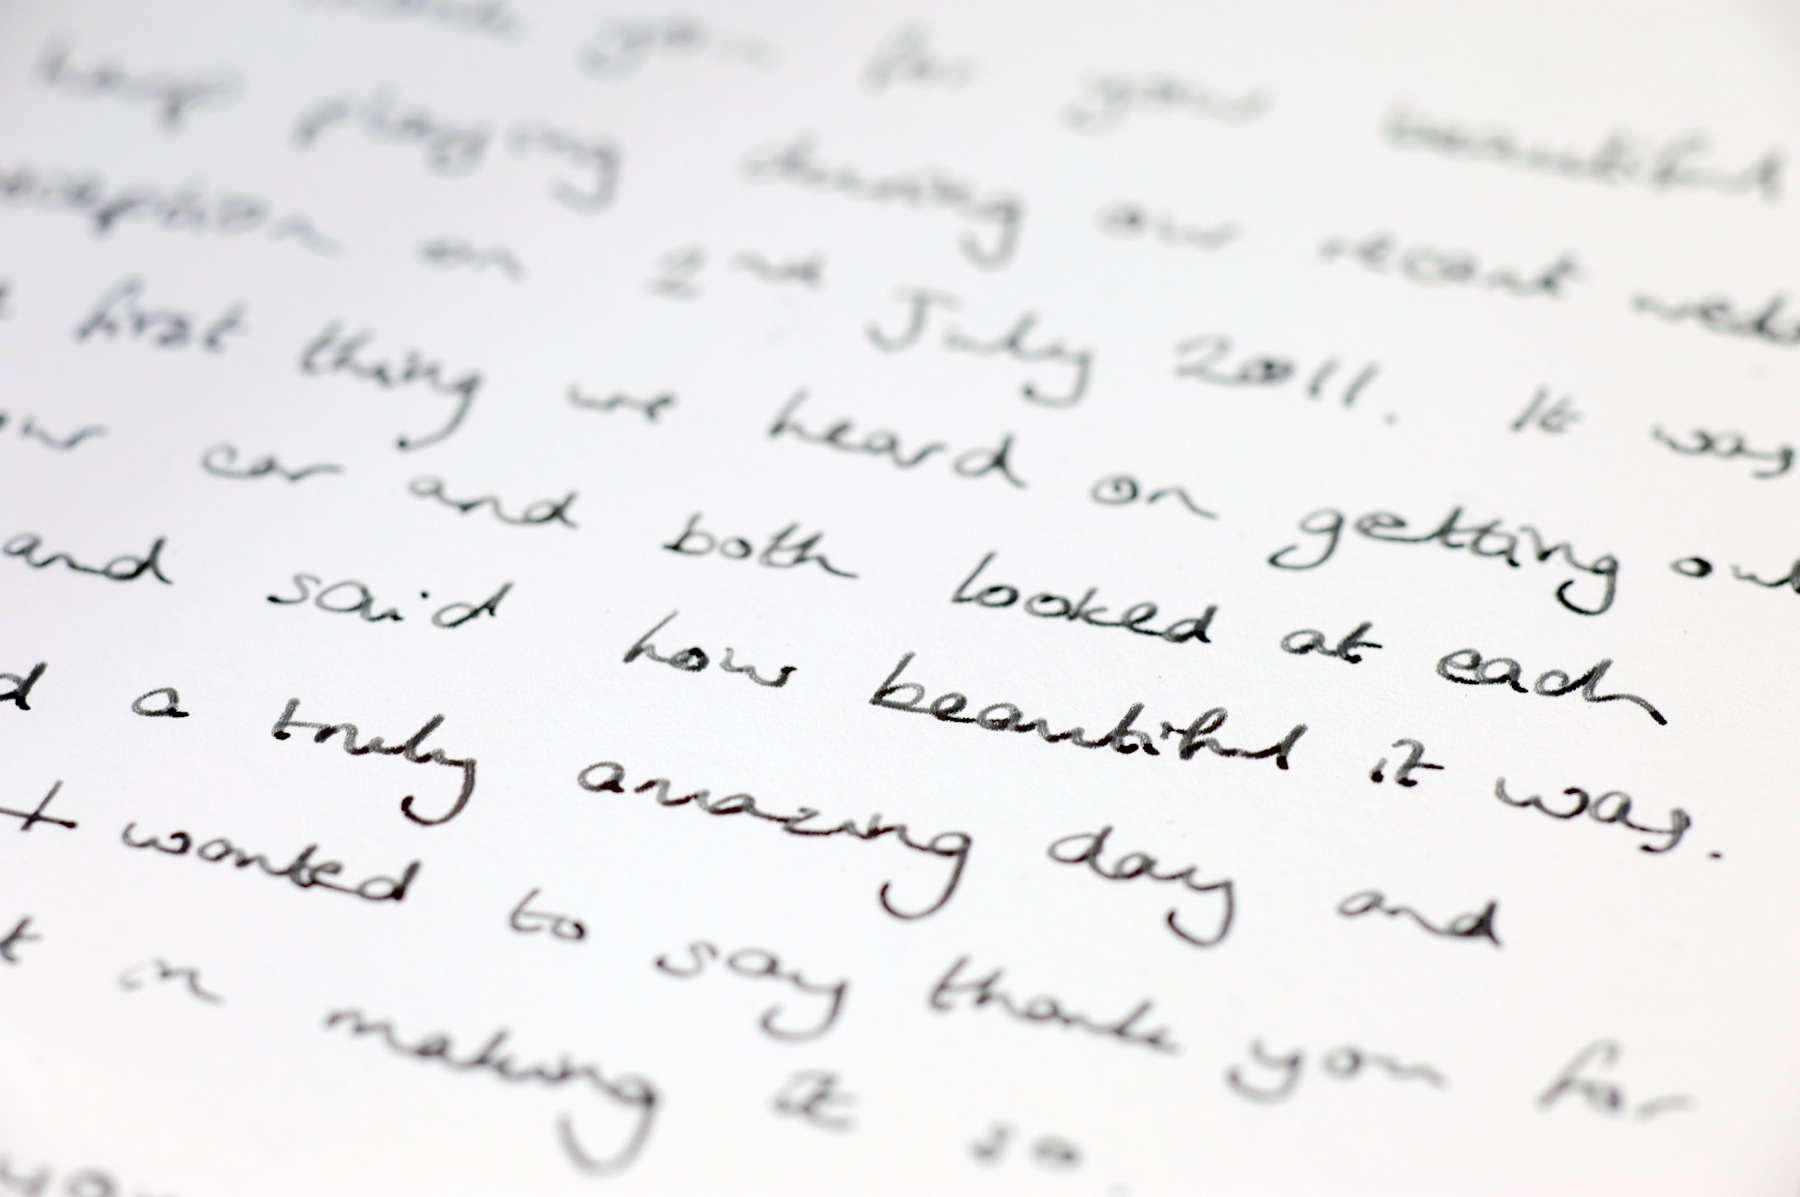 you for your beautiful
harp playing during our recent
on 2nd July 2011. It was
first thing we heard on getting out
our car and both looked at each
and said how beautiful it was.
a truly amazing day and
wanted to say thank you for
in making it so.